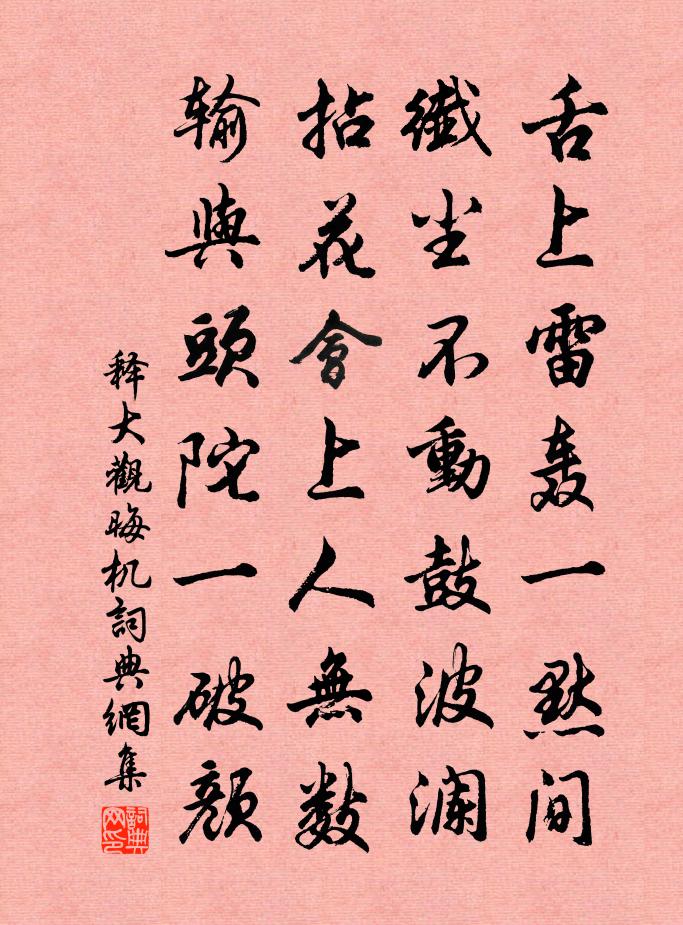 舌上雷轰一默间
纖尘不動鼓波澜
拈花會上人無数
输與頭陀一破颜
释大觀晦机詞典網集
詞典网印